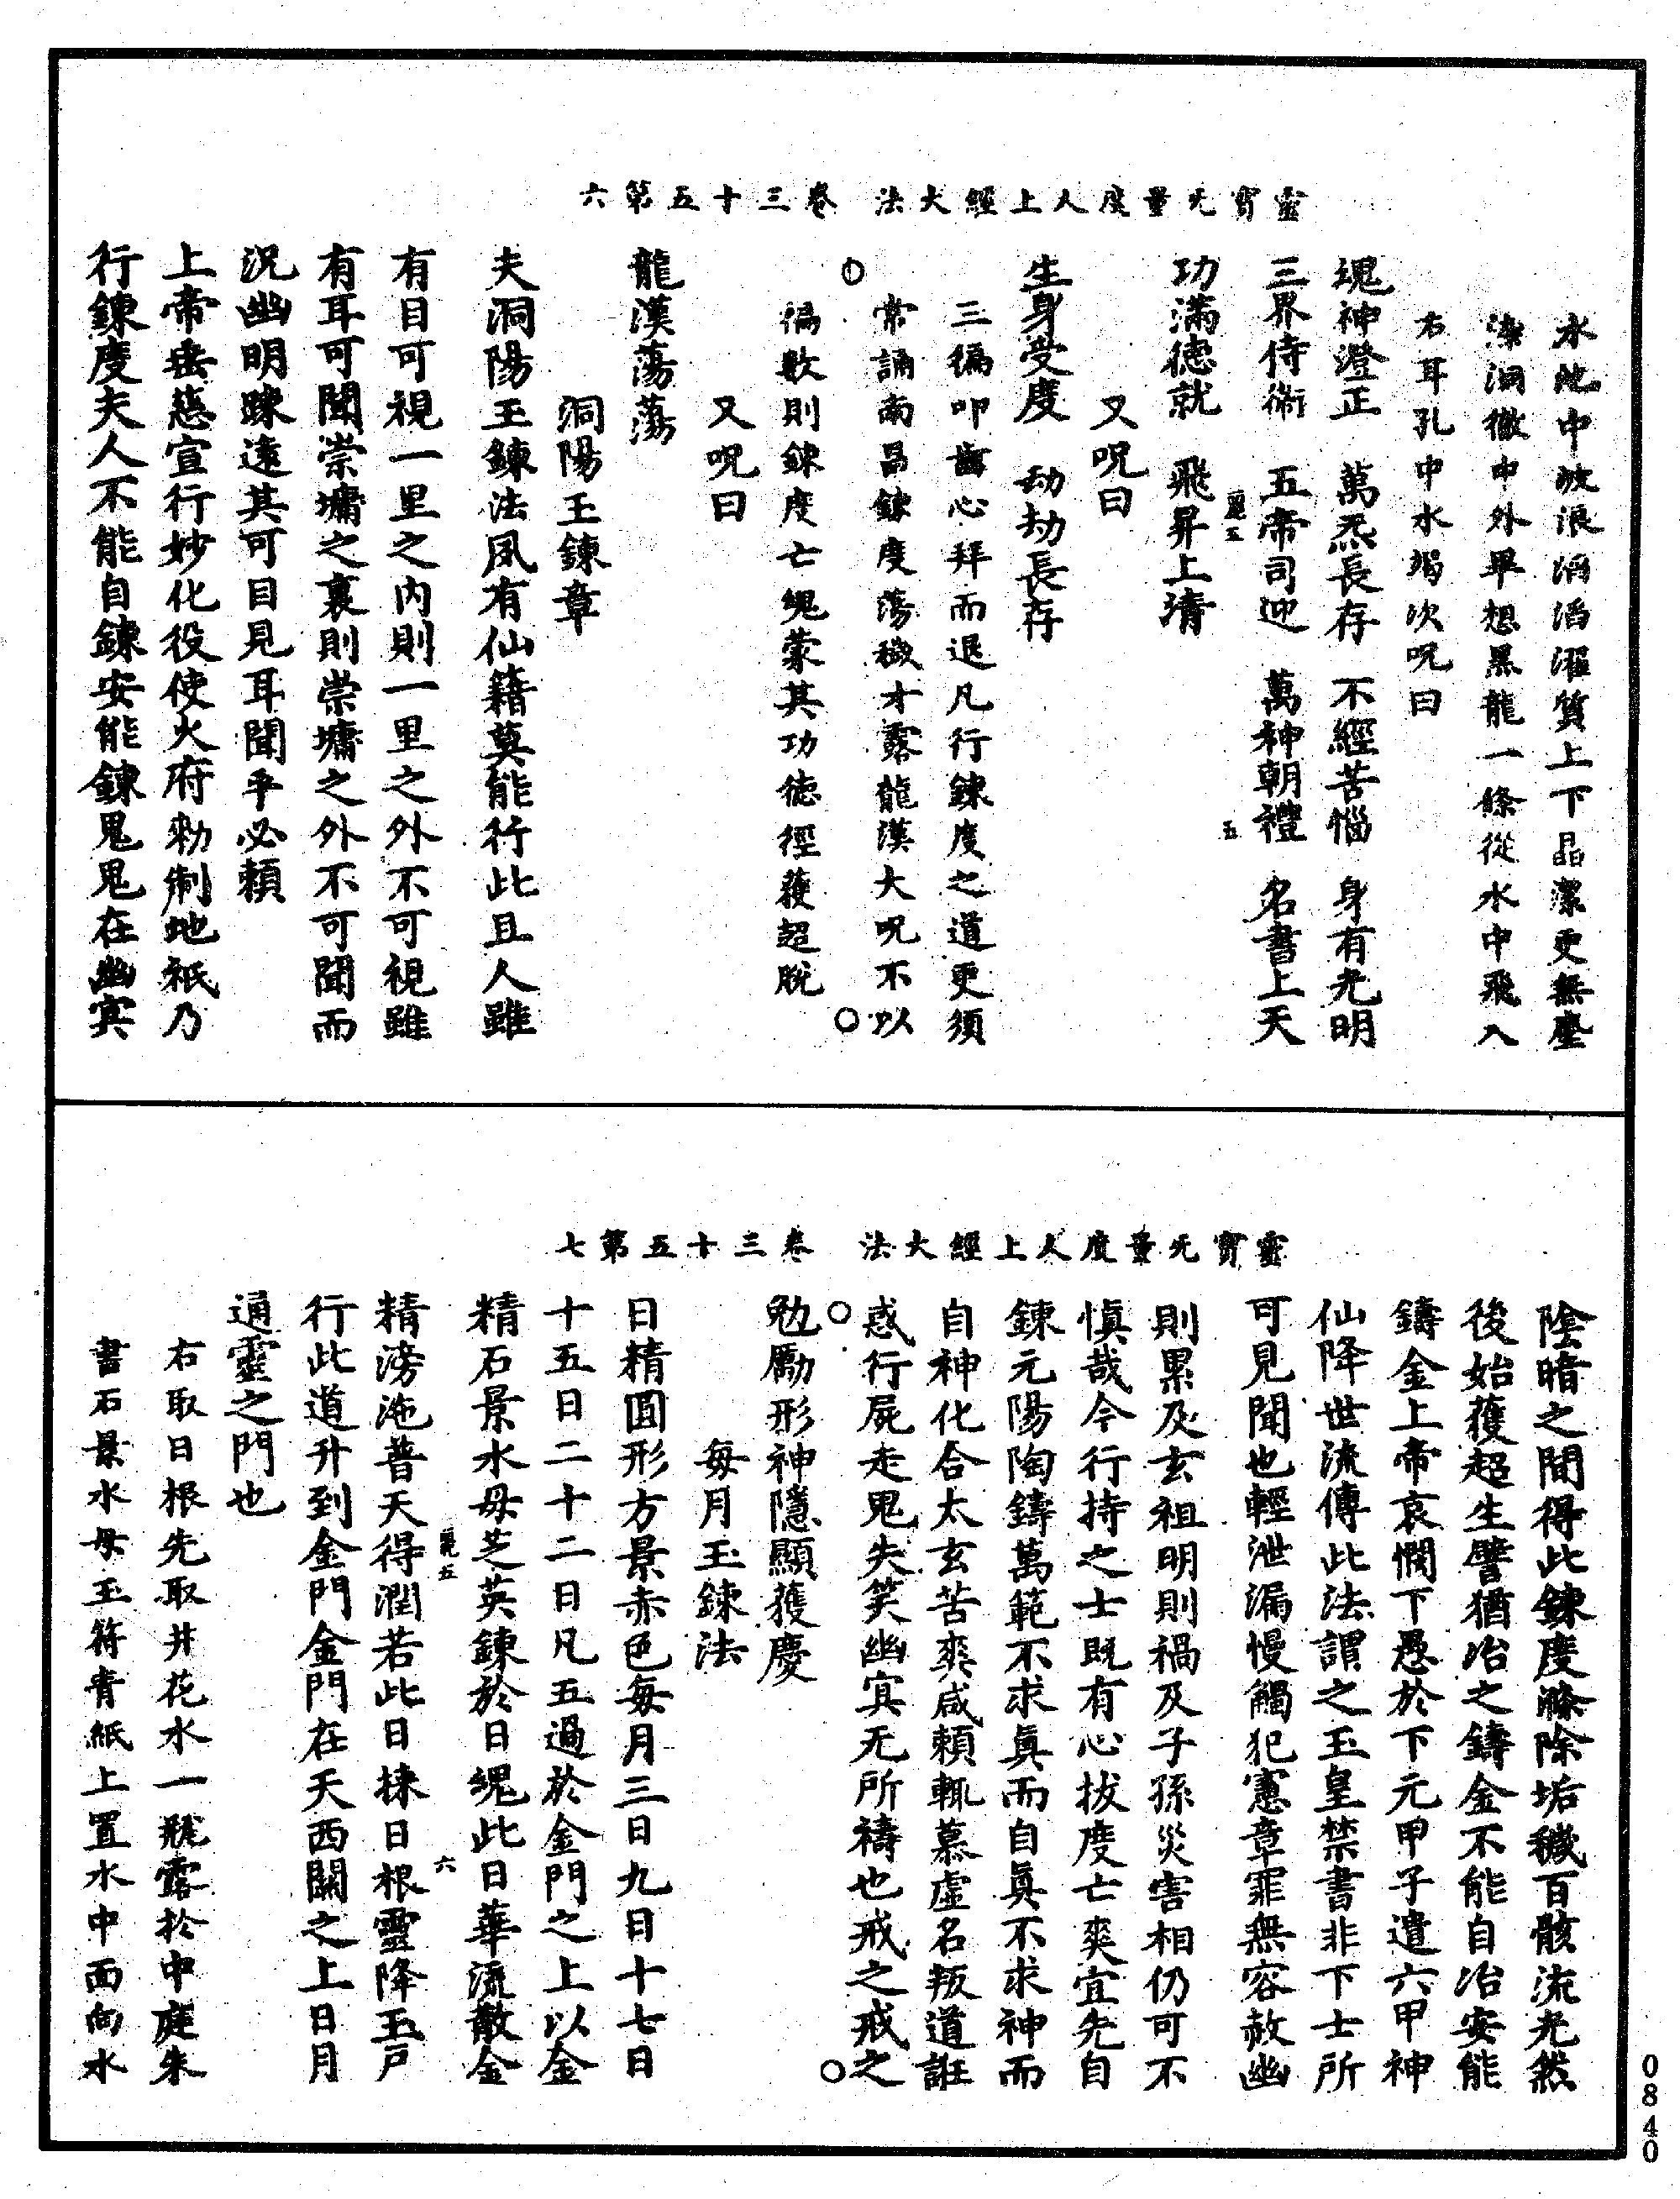 靈寶无量度人上經大法 卷三十五第六
水池中波浪滔滔濯質上下晶潔更無塵
㵽洞徹中外畢想黑龍一條從水中飛入
右耳孔中水竭次呪曰
魂神澄正 萬炁長存 不經苦惱 身有光明
三界侍衛 五帝司迎 萬神朝禮 名書上天
五
功滿德就 飛昇上清
又呪曰
生身受度 劫劫長存
三徧叩齒心拜而退凡行鍊度之道更須
常誦南昌鍊度蕩穢才露龍漢大呪不以
徧數則鍊度亡魂蒙其功德徑獲超脫
又呪曰
龍漢蕩蕩
洞陽玉鍊章
夫洞陽玉鍊法夙有仙籍莫能行此且人雖
有目可視一里之內則一里之外不可視雖
有耳可聞崇墉之裏則崇墉之外不可聞而
況幽明踈遠其可目見耳聞乎必賴
上帝垂慈宣行妙化役使火府勑制地祇乃
行鍊度夫人不能自鍊安能鍊鬼鬼在幽冥
靈寶无量度人上經大法 卷三十五第七
陰暗之間得此鍊度滌除垢穢百骸流光然
後始獲超生譬猶冶之鑄金不能自冶安能
鑄金上帝哀憫下愚於下元甲子遣六甲神
仙降世流傳此法謂之玉皇禁書非下士所
可見聞也輕泄漏慢觸犯憲章罪無容赦幽
則累及玄祖明則禍及子孫災害相仍可不
慎哉今行持之士既有心拔度亡爽宜先自
鍊元陽陶鑄萬範不求真而自真不求神而
自神化合太玄苦爽咸賴輒慕虛名叛道誑
惑行屍走鬼失笑幽冥无所禱也戒之戒之
勉勵形神隱顯獲慶
每月玉鍊法
日精圓形方景赤色每月三日九日十七日
十五日二十二日凡五過於金門之上以金
精石景水母芝英鍊於日魂此日華流散金
六
精滂沲普天得潤若此日採日根靈降玉戶
行此道升到金門金門在天西關之上日月
通靈之門也
右取日根先取井花水一瓶露於中庭朱
書石景水母玉符青紙上置水中面向水
0840